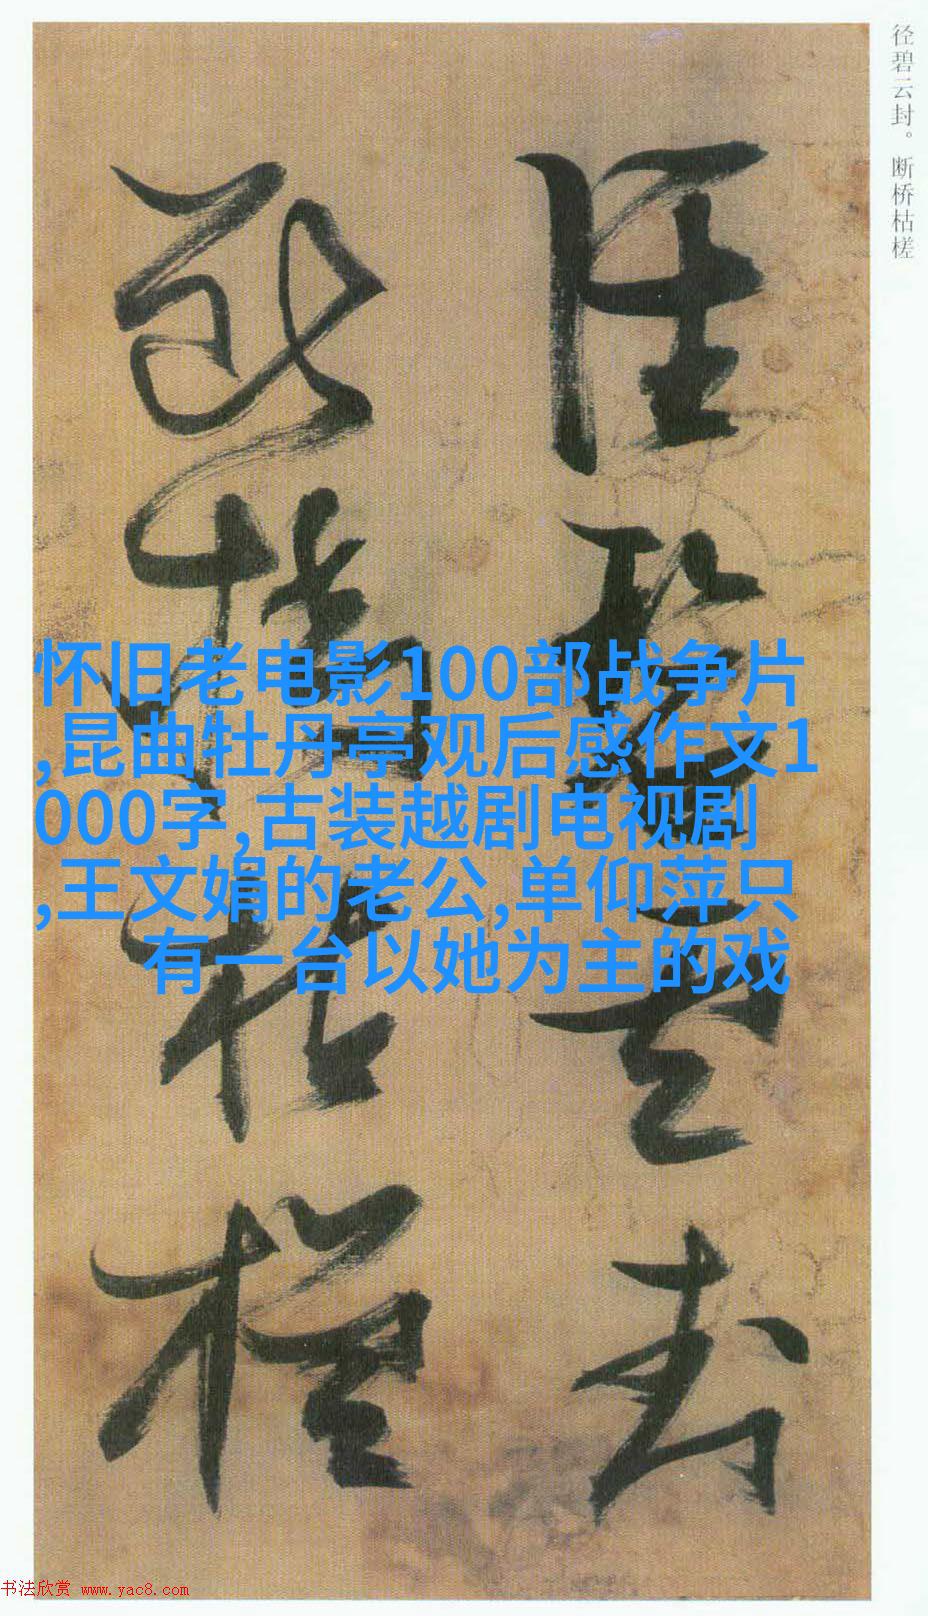 径碧云封。断桥枯槎
径碧云封
断桥枯槎
怀旧老电影100部战争片
,昆曲牡丹亭观后感作文1
000字,古装越剧电视剧
,王文娟的老公,单仰萍只
有一台以她为主的戏
书法欣赏 www.yac8.com